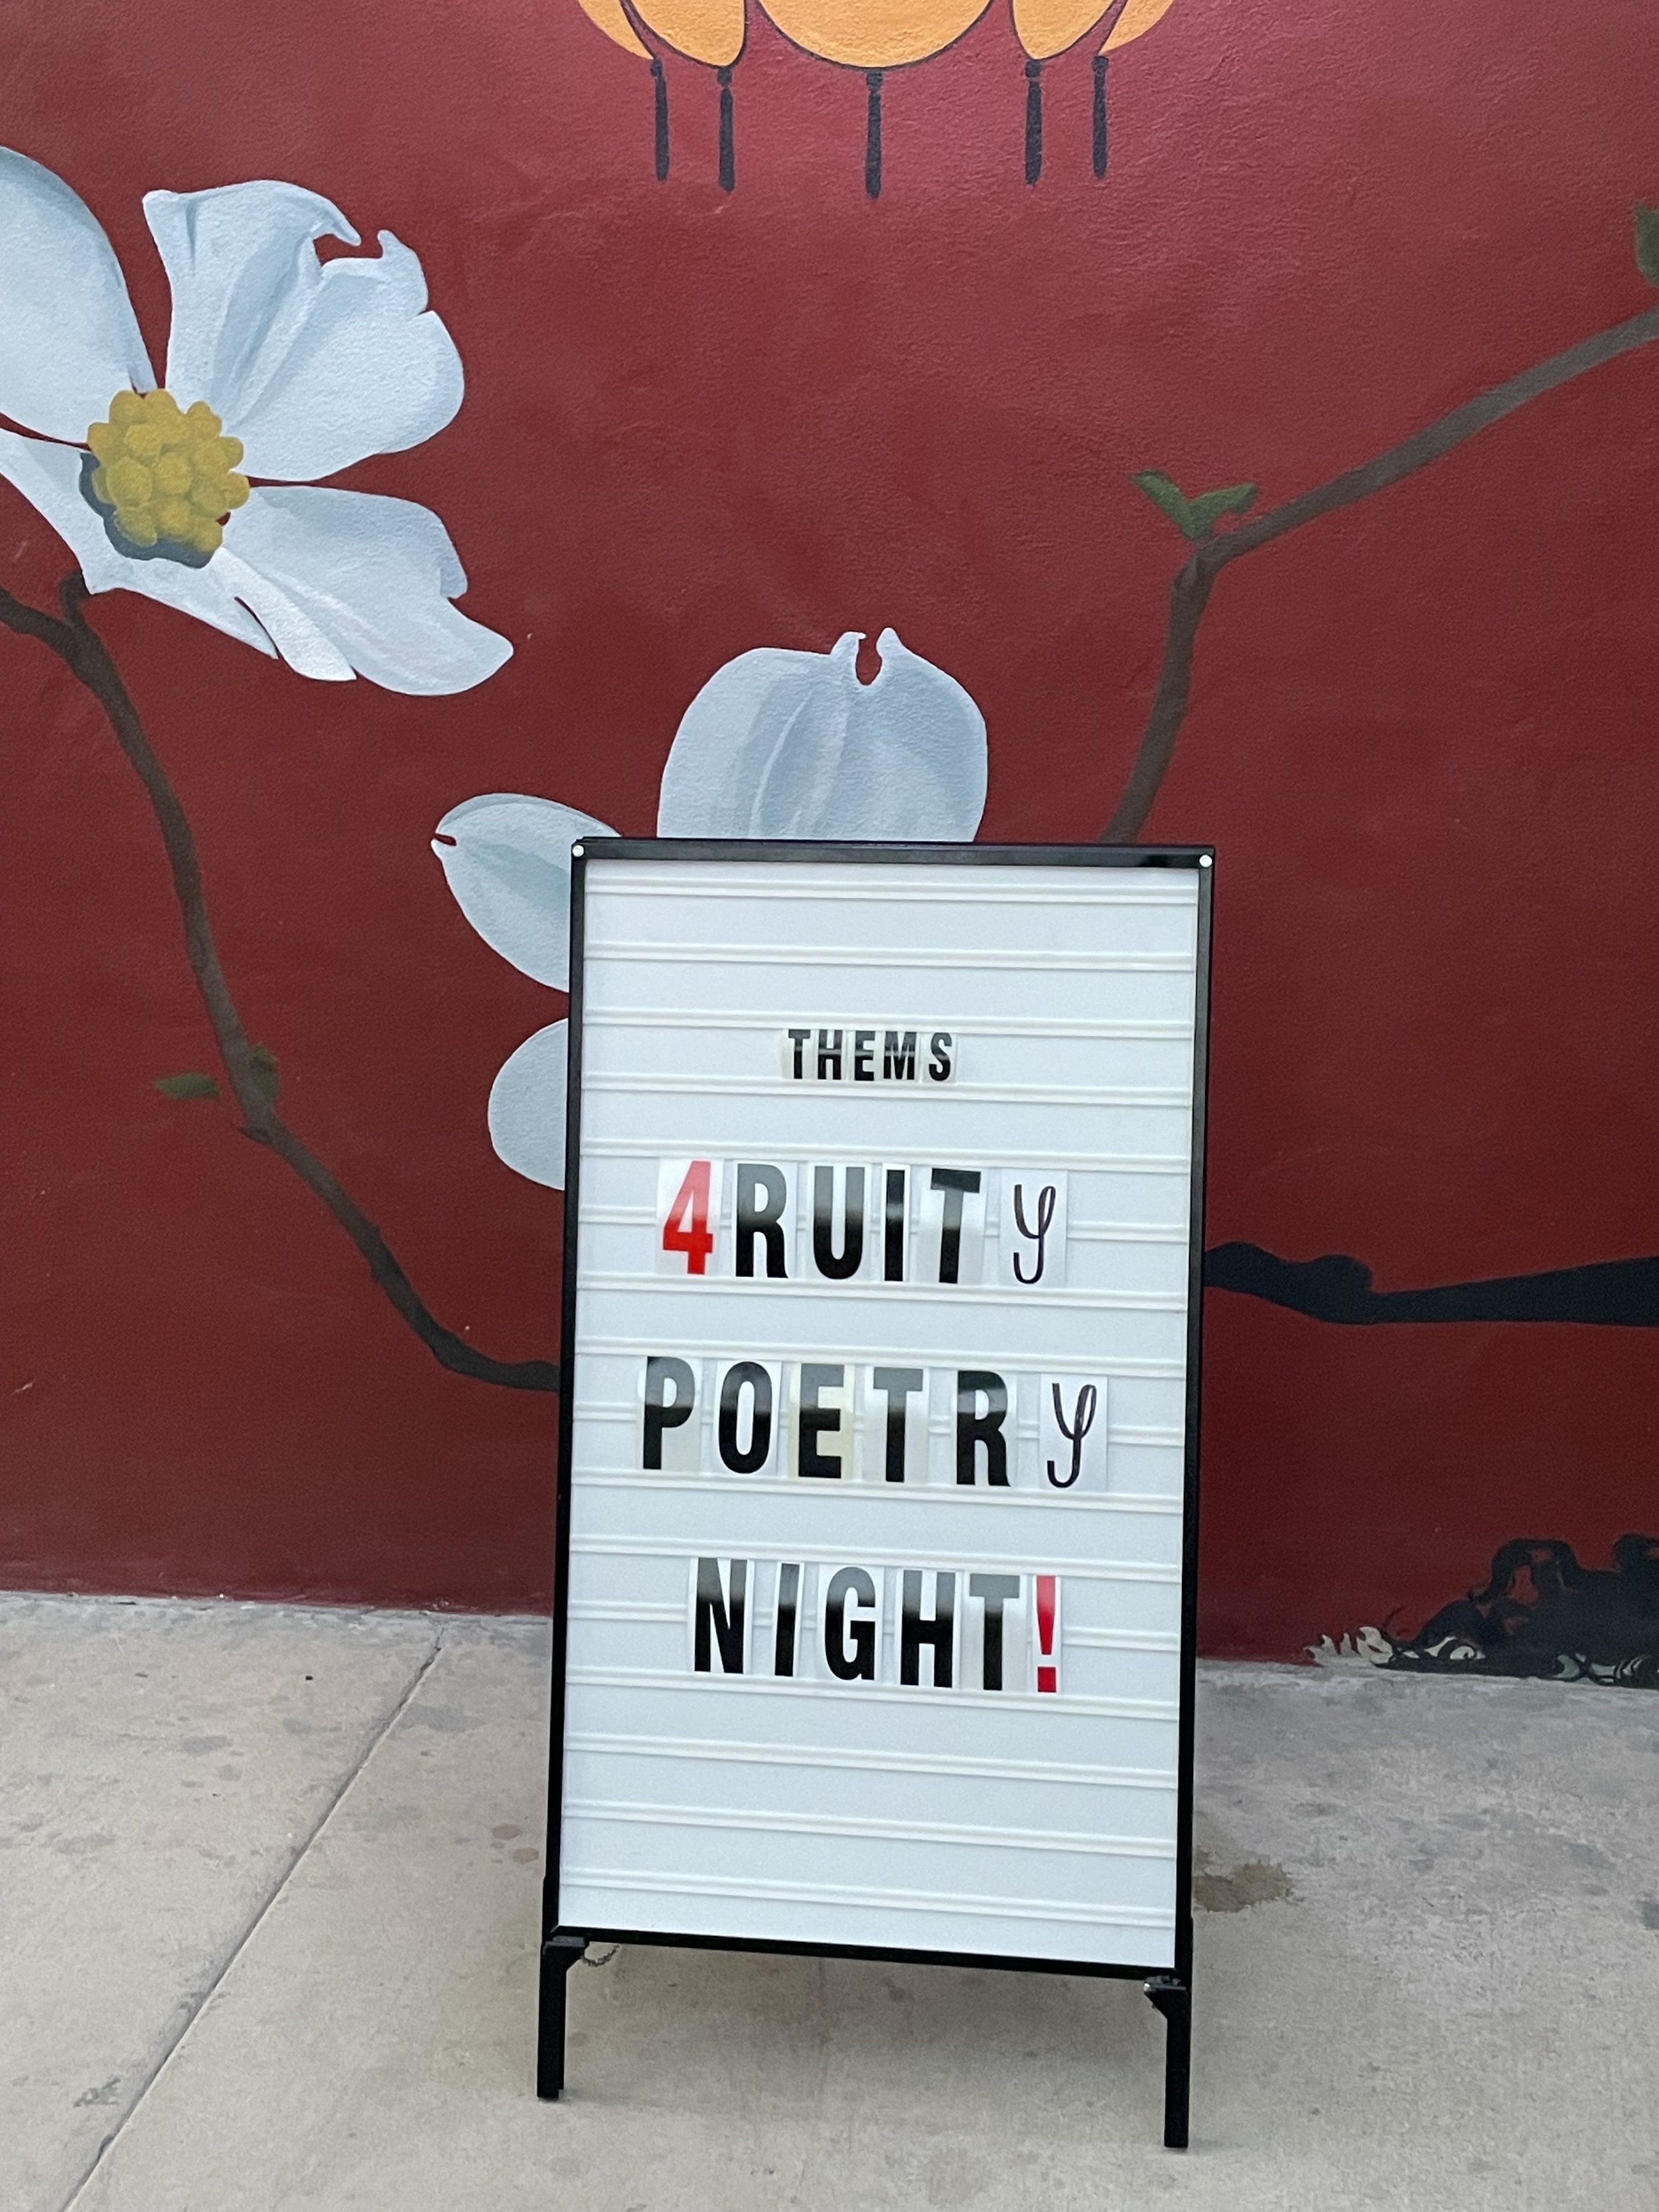 THEMS
4RUITy
POETRy
NIGHT!